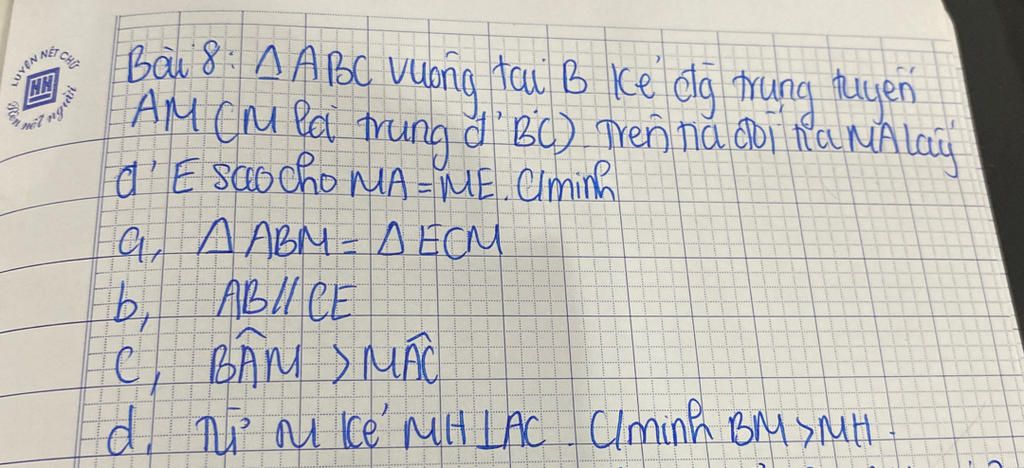 LUYỆN NÉT CHỮ
HH
Rèn nết người
Bài 8: Δ ABC vuông tại B kẻ đg trung tuyến
AM (M là trung đ' BC). Trên tia đối tia MA lấy
đ' E sao cho MA = ME. C/minh
a, Δ ABM = Δ ECM
b, AB // CE
c, BÂM > MÂC
d. Từ M kẻ MH ⊥ AC. C/minh BM > MH.